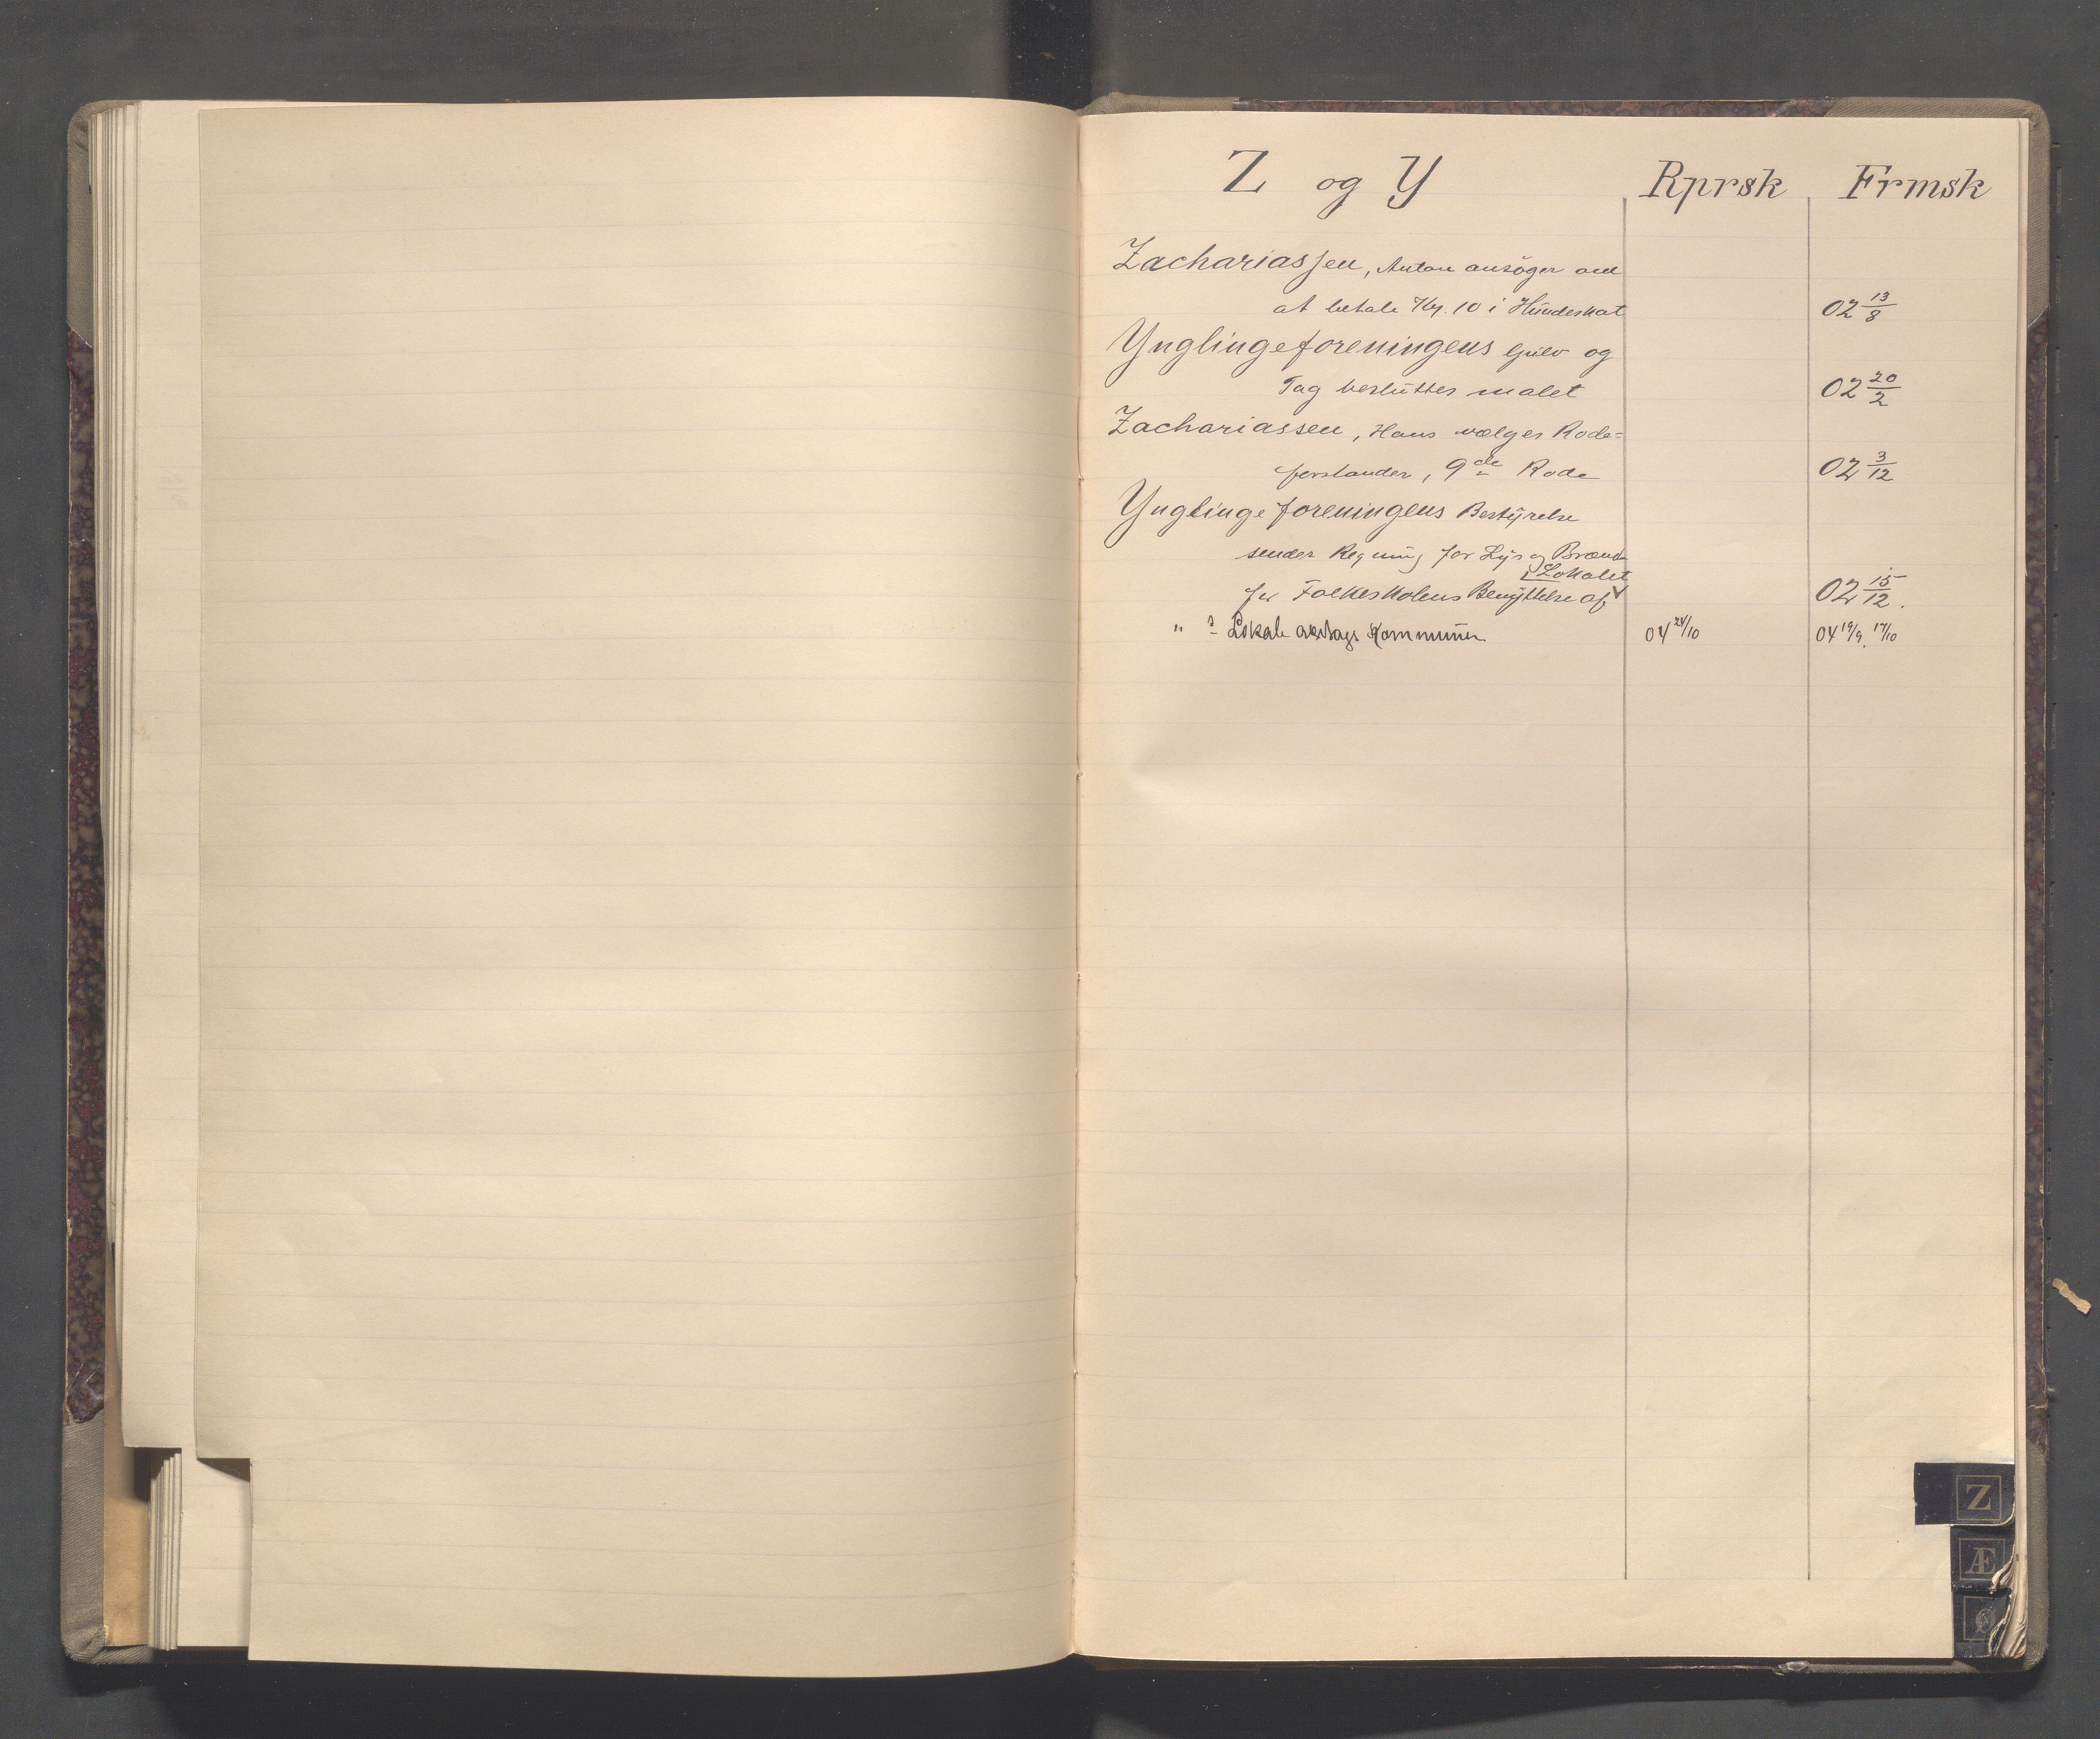 Z og Y Rprsk Frmsk
Zachariassen, Anton ansöger om
at betale Kr. 10 i Hundeskat 02 13/8
Ynglingeforeningens Gulv og
Tag besluttes malet 02 20/2
Zachariassen, Hans vælges Rode=
forstander, 9de Rode 02 3/12
Ynglingeforeningens Bestyrelse
sender Regning for Lys og Brænde
i Lokalet
for Folkeskolens Benyttelse af 02 15/12.
" s Lokale Kommunen 04 24/10 04 19/9. 17/10
Z
Æ
Ø